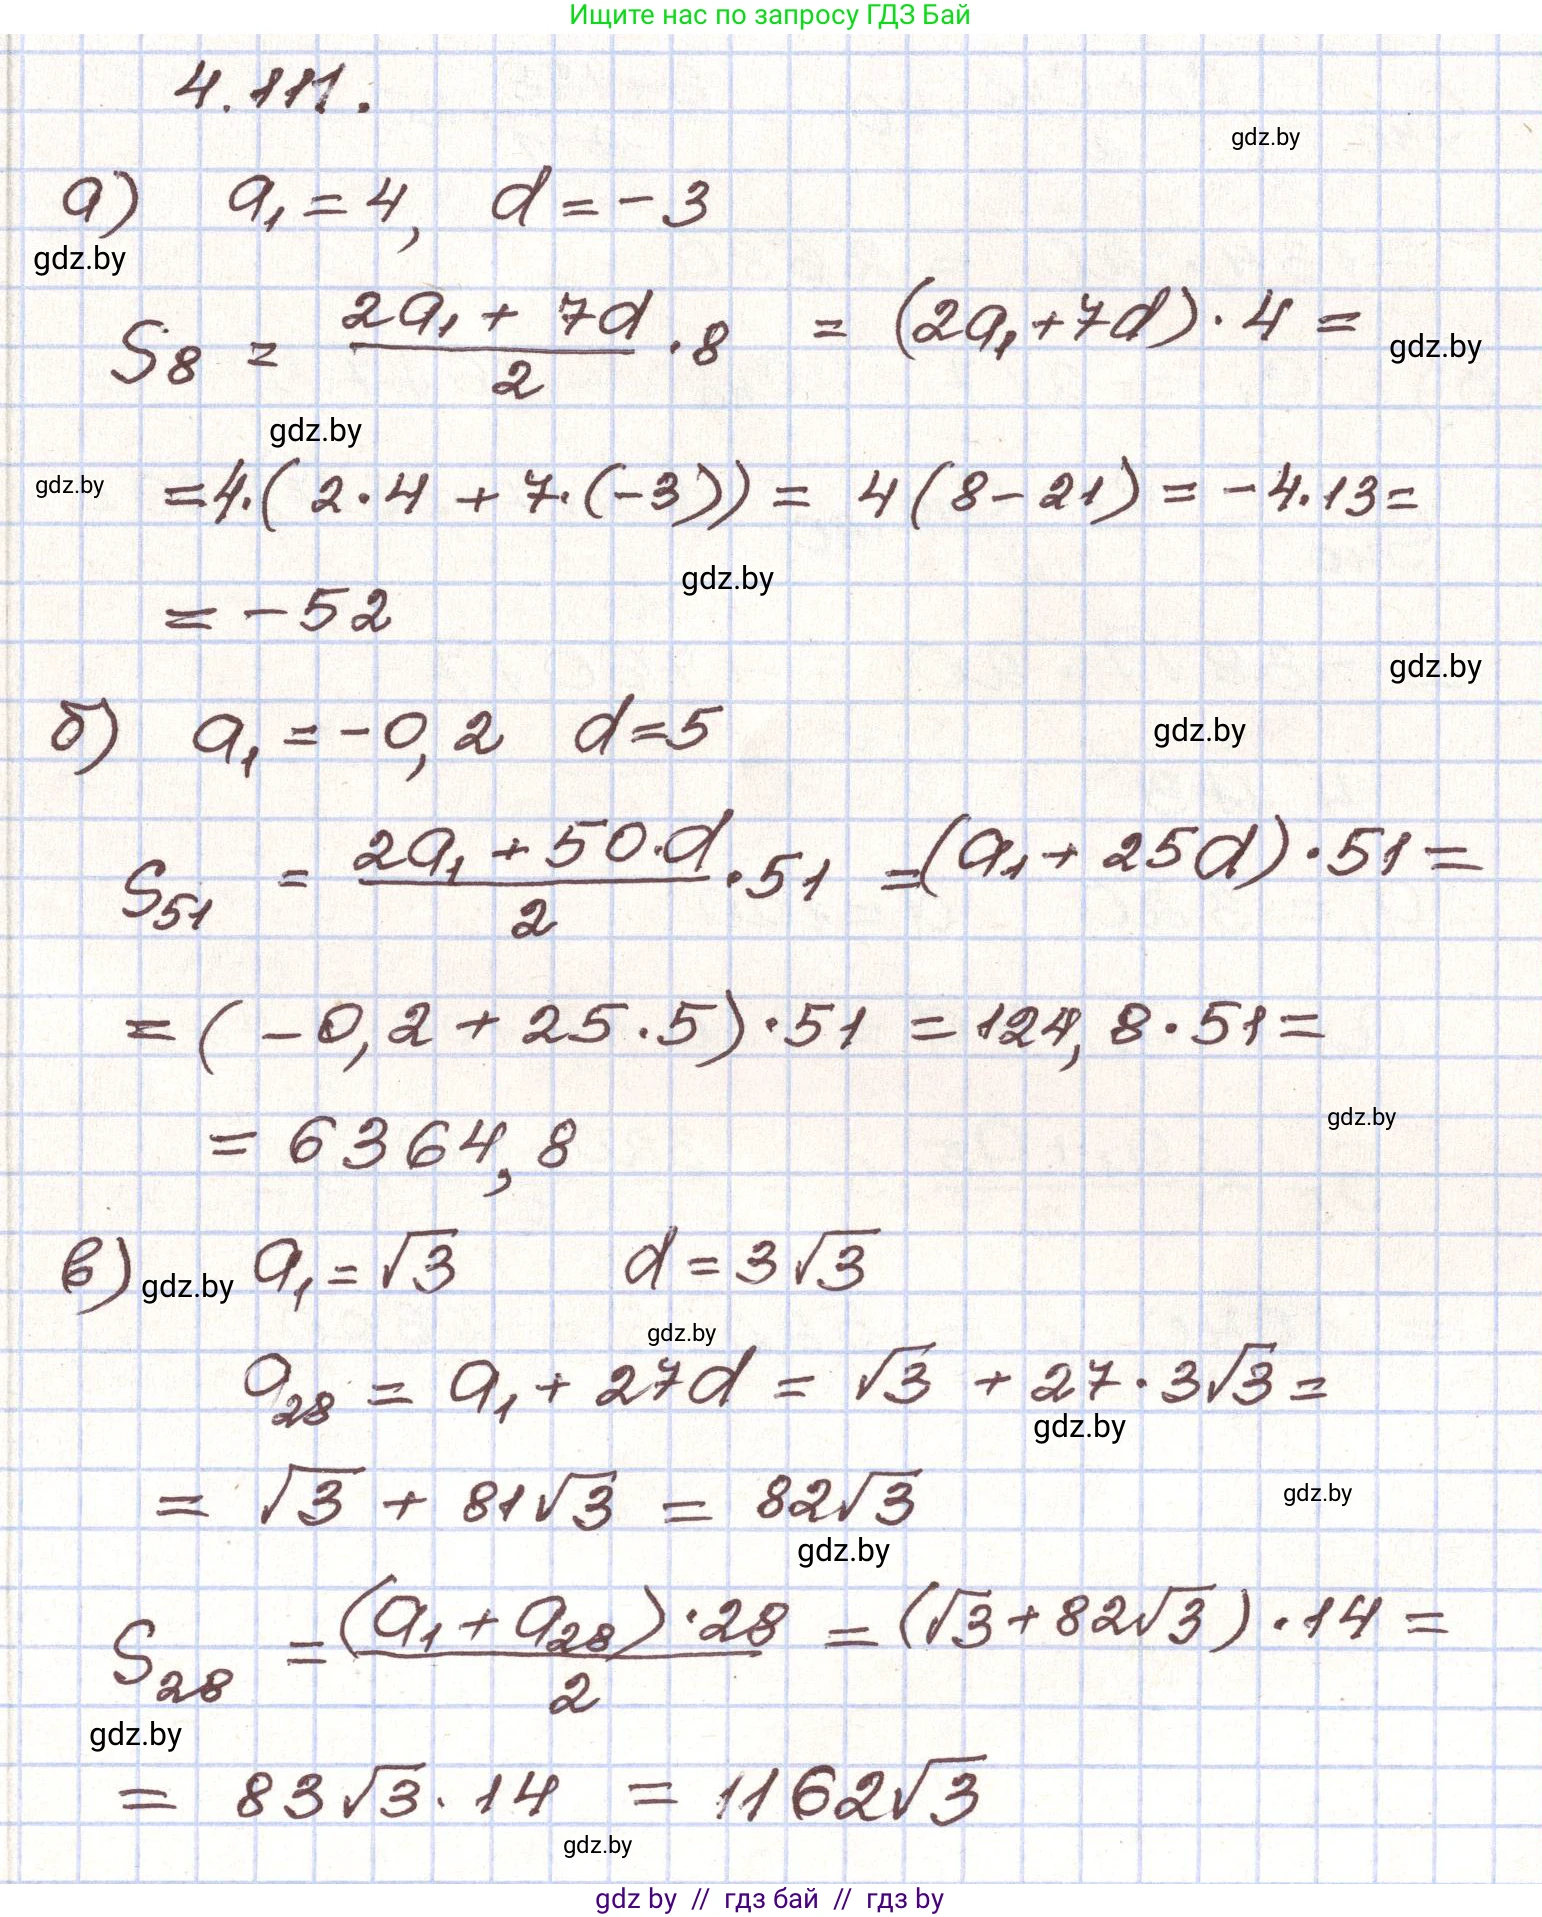 Ищите нас по запросу ГДЗ Бай
4.111.
gdz.by
а) a₁ = 4, d = -3
gdz.by
S₈ = (2a₁ + 7d)/2 · 8 = (2a₁ + 7d) · 4 =
gdz.by
gdz.by
gdz.by
= 4·(2·4 + 7·(-3)) = 4(8 - 21) = -4·13 =
gdz.by
= -52
gdz.by
б) a₁ = -0,2 d = 5
gdz.by
S₅₁ = (2a₁ + 50·d)/2 · 51 = (a₁ + 25d) · 51 =
= (-0,2 + 25·5) · 51 = 124,8 · 51 =
gdz.by
= 6364,8
в) a₁ = √3 d = 3√3
gdz.by
gdz.by
a₂₈ = a₁ + 27d = √3 + 27·3√3 =
gdz.by
= √3 + 81√3 = 82√3
gdz.by
gdz.by
S₂₈ = (a₁ + a₂₈)·28/2 = (√3 + 82√3) · 14 =
gdz.by
= 83√3 · 14 = 1162√3
gdz.by
gdz by // гдз бай // гдз by